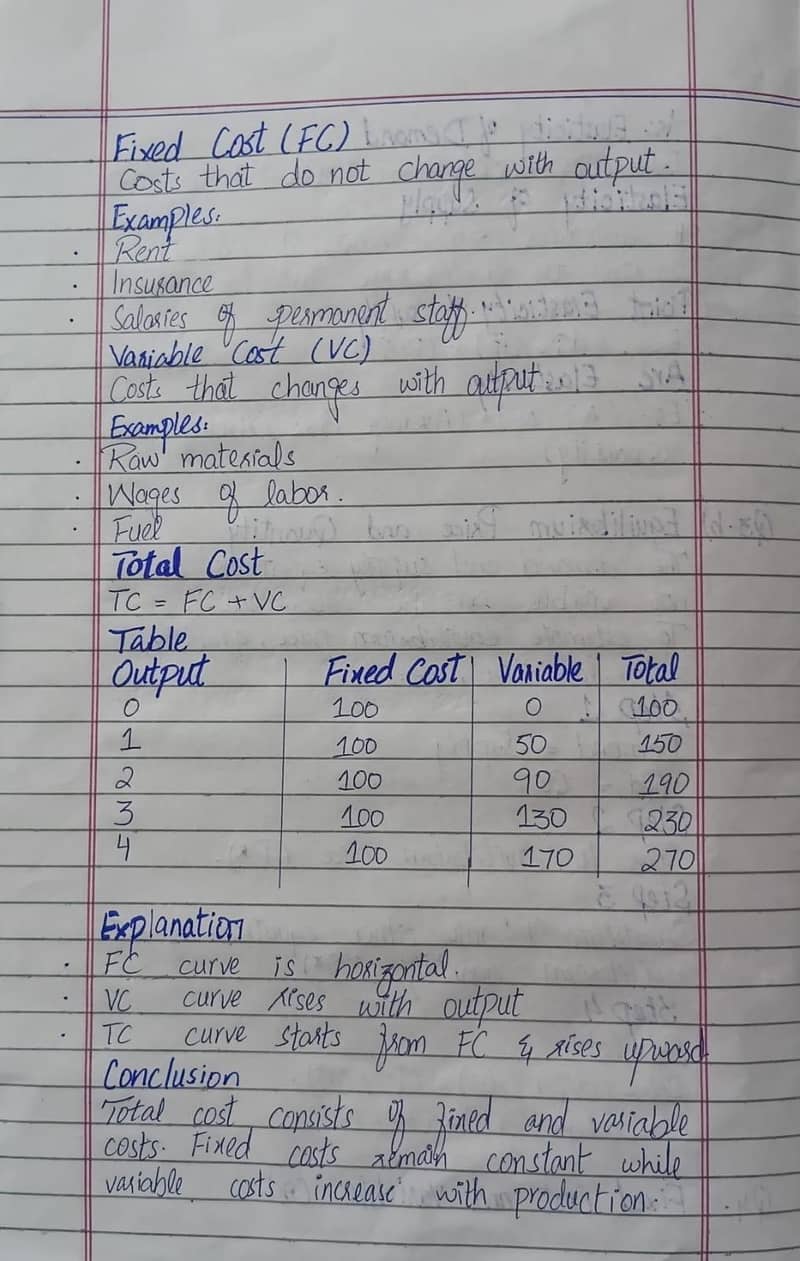 Fixed Cost (FC)
Costs that do not change with output.
Examples:
· Rent
· Insurance
· Salaries of permanent staff.
Variable Cost (VC)
Costs that changes with output.
Examples:
· Raw materials
· Wages of labor.
· Fuel
Total Cost
TC = FC + VC
Table
Output | Fixed Cost | Variable | Total
0 | 100 | 0 | 100
1 | 100 | 50 | 150
2 | 100 | 90 | 190
3 | 100 | 130 | 230
4 | 100 | 170 | 270
Explanation
· FC curve is horizontal.
· VC curve rises with output
· TC curve starts from FC & rises upward
Conclusion
Total cost consists of fixed and variable
costs. Fixed costs remain constant while
variable costs increase with production.